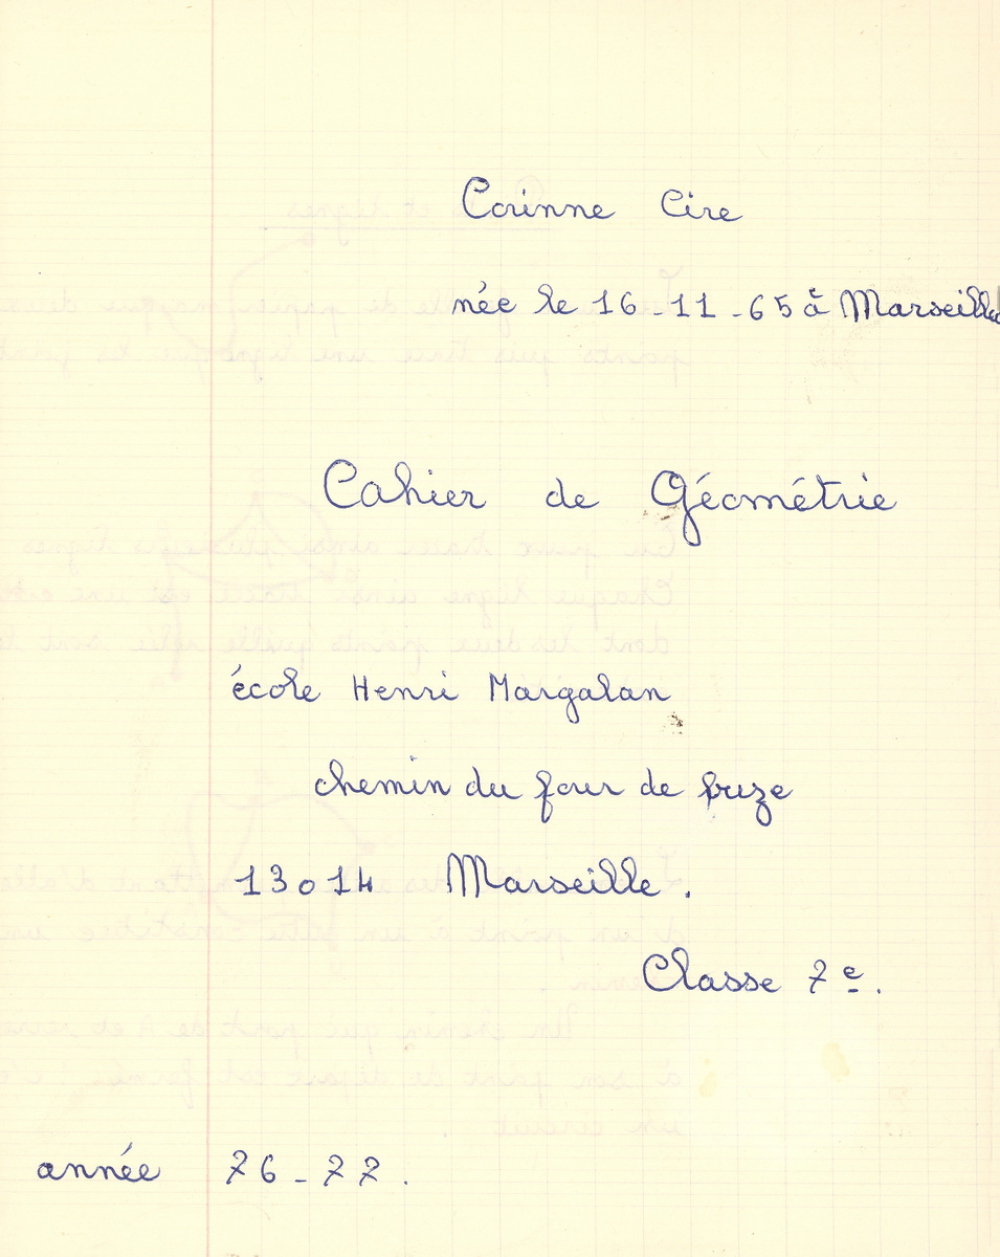 Corinne Cire
née le 16-11-65 à Marseille
Cahier de Géométrie
école Henri Margalan
chemin du four de buze
13014 Marseille.
Classe 7e.
année 76-77.